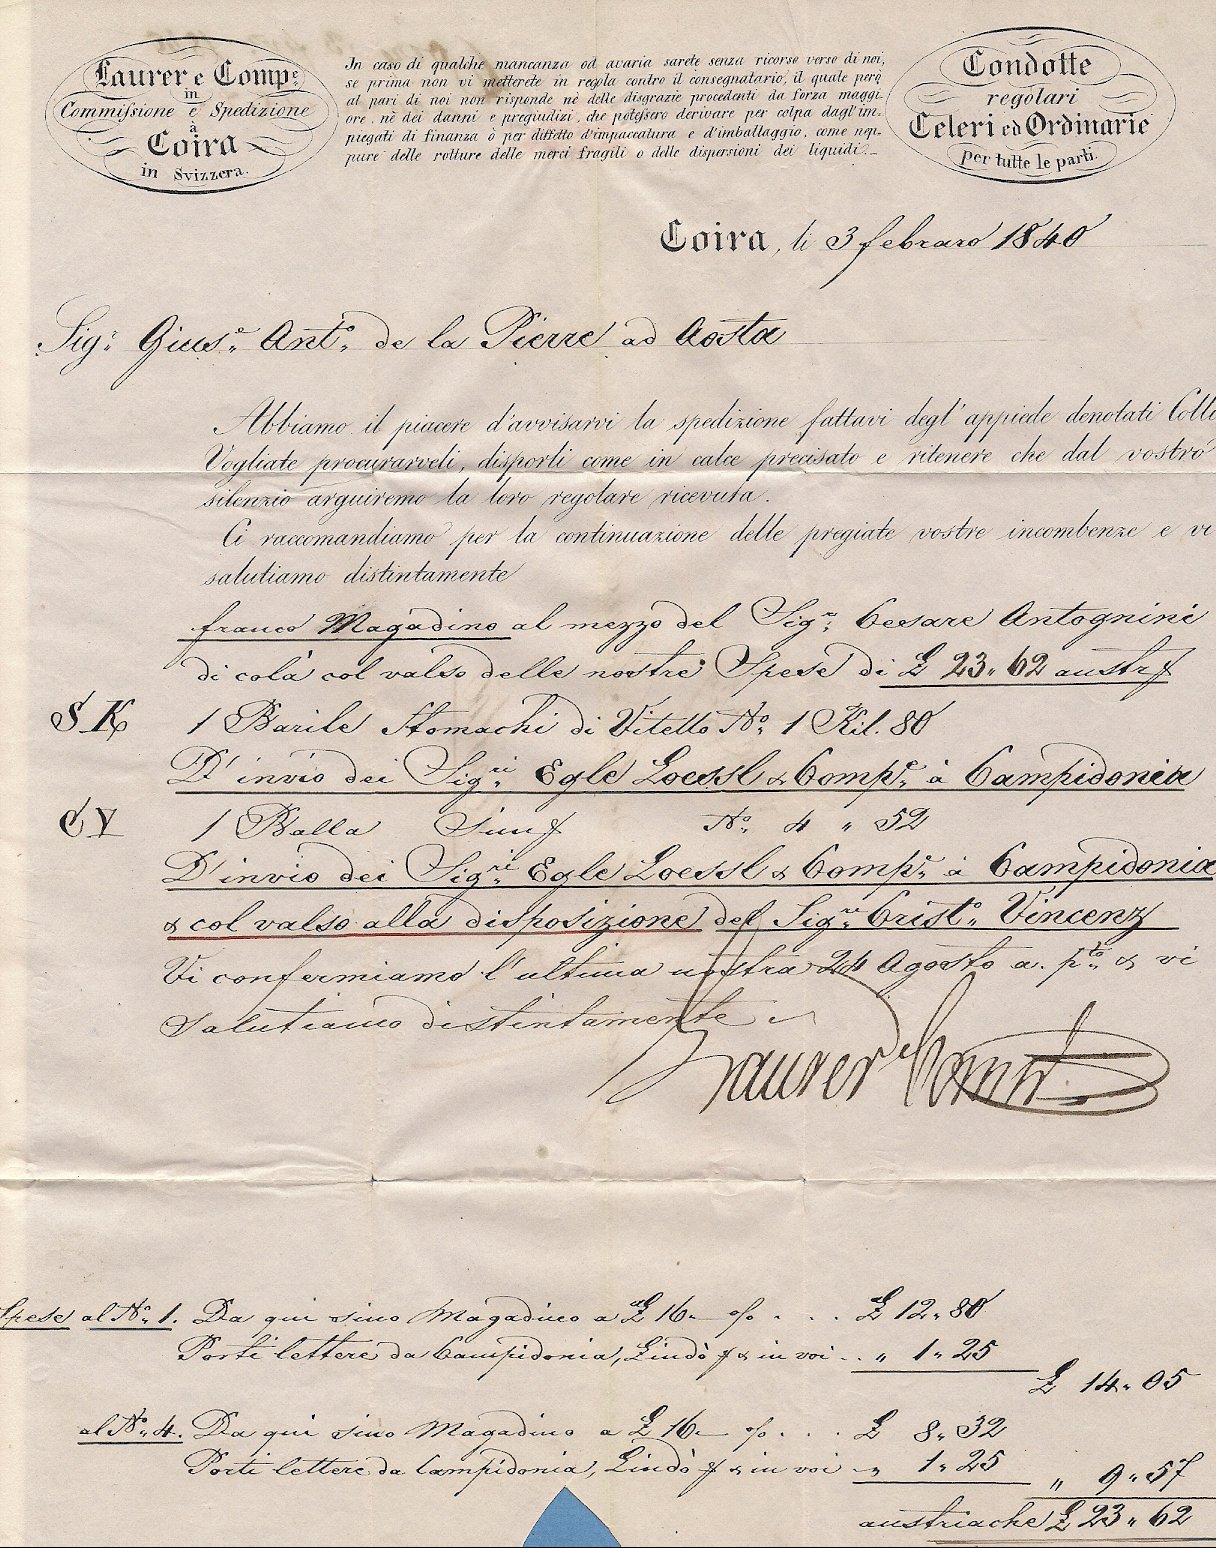 Laurer e Comp.e
in
Commissione e Spedizione
à
Coira
in Svizzera.
In caso di qualche mancanza od avaria sarete senza ricorso verso di noi,
se prima non vi metterete in regola contro il consegnatario, il quale però
al pari di noi non risponde nè delle disgrazie procedenti da forza maggi-
ore, nè dei danni e pregiudizi, che potessero derivare per colpa dagl'im-
piegati di finanza ò per diffetto d'impaccatura e d'imballaggio, come nep-
pure delle rotture delle merci fragili o delle dispersioni dei liquidi.
Condotte
regolari
Celeri ed Ordinarie
per tutte le parti.
Coira, li 3 febraro 1840
Sig.r Gius.e Ant.o de la Pierre ad Aosta
Abbiamo il piacere d'avvisarvi la spedizione fattavi degl'appiede denotati Colli
Vogliate procurarveli, disporli come in calce precisato e ritenere che dal vostro
silenzio arguiremo la loro regolare ricevuta.
Ci raccomandiamo per la continuazione delle pregiate vostre incombenze e vi
salutiamo distintamente
franco Magadino al mezzo del Sig.re Cesare Antognini
di colà col valso delle nostre Spese di £ 23„62 austr
SK 1 Barile Stomachi di Vitello No. 1 Kil. 80
D'invio dei Sig.ri Egle Loessl & Comp.e à Campidonia
CV 1 Balla No. 4 „ 52
D'invio dei Sig.ri Egle Loessl & Comp.e à Campidonia
& col valso alla disposizione del Sig.re Crist.o Vincenz
Vi confermiamo l'ultima nostra 24 Agosto a. p.to & vi
salutiamo distintamente
Laurer Comp
Spese al No. 1. Da qui sino Magadino a £ 16 % . . . £ 12„80
Porti lettere da Campidonia, Lindò & in voi . . „ 1„25
£ 14„05
al No. 4. Da qui sino Magadino a £ 16 % . . . £ 8„32
Porti lettere da Campidonia, Lindò & in voi „ 1„25
„ 9„57
austriache £ 23„62